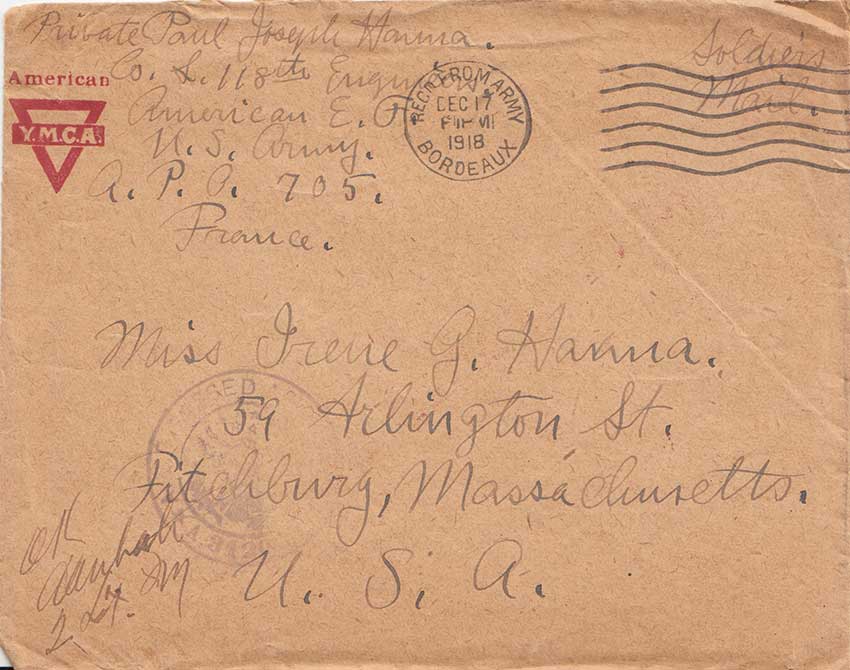 Private Paul Joseph Hanna.
Co. L. 118th Engineers
American E. F.
U. S. Army.
A. P. O. 705.
France.
American
Y.M.C.A.
REC'D FROM ARMY
DEC 17
1918
BORDEAUX
Soldiers
Mail.
Miss Irene G. Hanna.
59 Arlington St.
Fitchburg, Massachusetts.
U. S. A.
OK
2 Lt.